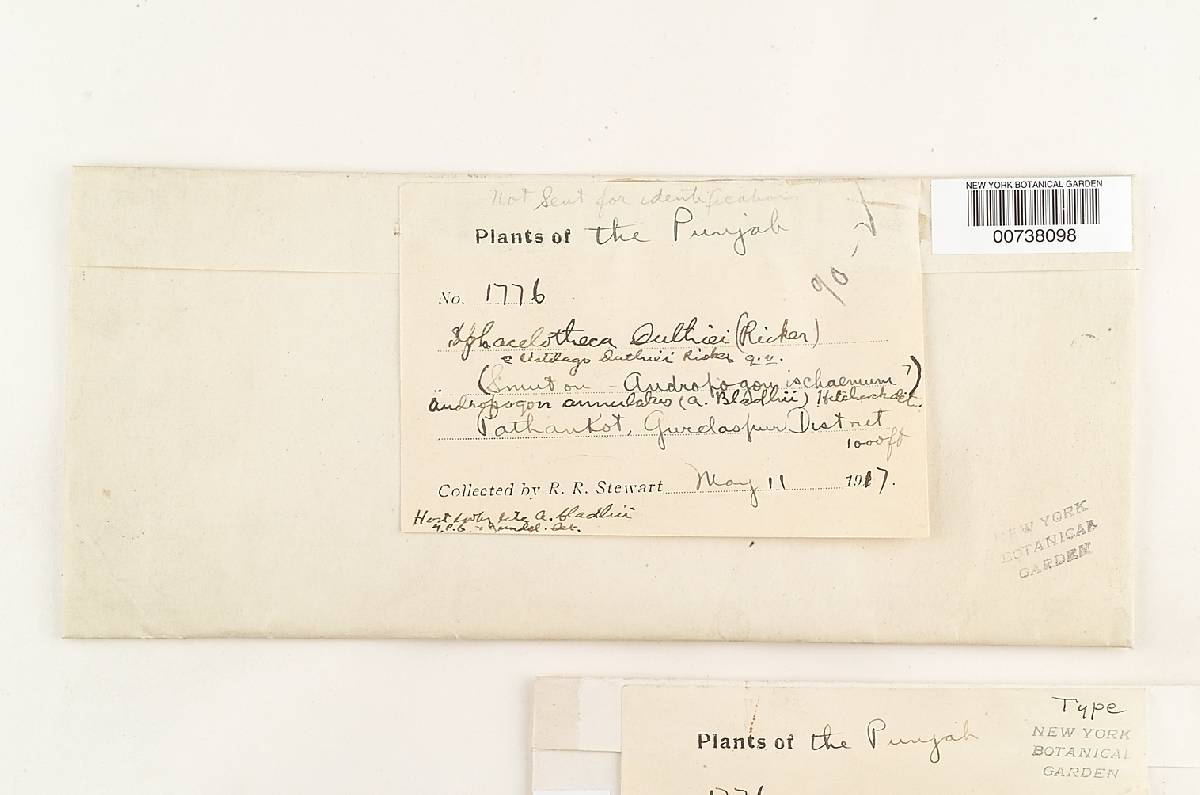 Not Sent for identification
Plants of the Punjab
90-
NEW YORK BOTANICAL GARDEN
00738098
No. 1776
Sphacelotheca Duthiei (Ricker)
= Ustilago Duthiei Ricker q.v.
(Smut on - Andropogon ischaemum ?)
Andropogon annulatus (A. Bladhii) Hitchcock det.
Pathankot, Gurdaspur District
1000 ft
Collected by R. R. Stewart May 11 1917.
Host A. bladhii
det.
NEW YORK
BOTANICAL
GARDEN
Type
Plants of the Punjab
NEW YORK
BOTANICAL
GARDEN
1776